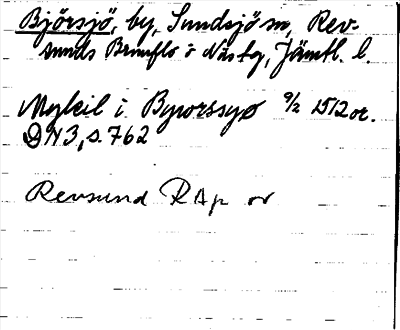 Björsjö, by, Sundsjö sn, Rev-
sunds Brunflo o Näs tg, Jämtl. l.
Mykil i Byrorssyø 9/2 1512 or.
DN 3, s. 762
Revsund RAp or